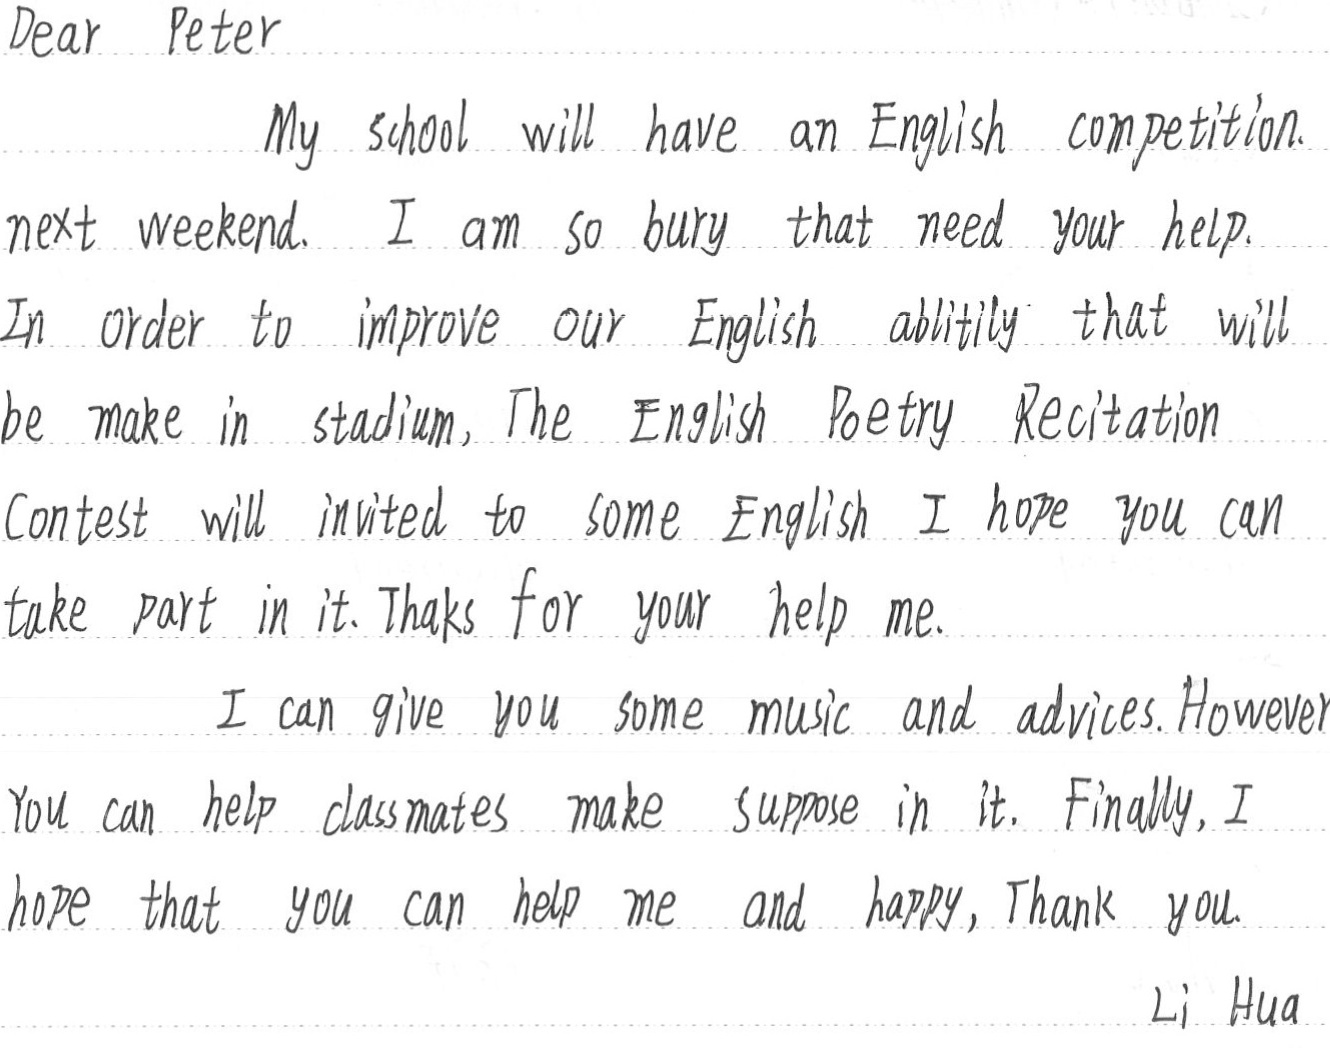 Dear Peter
My school will have an English competition.
next weekend. I am so bury that need your help.
In order to improve our English ablitily that will
be make in stadium, The English Poetry Recitation
Contest will invited to some English I hope you can
take part in it. Thaks for your help me.
I can give you some music and advices. However
You can help classmates make suppose in it. Finally, I
hope that you can help me and happy, Thank you.
Li Hua